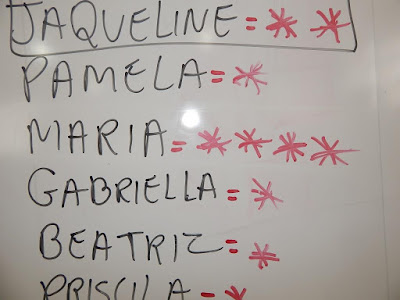 JAQUELINE = * *
PAMELA = *
MARIA = * * * *
GABRIELLA = *
BEATRIZ = *
PRISCILA = *